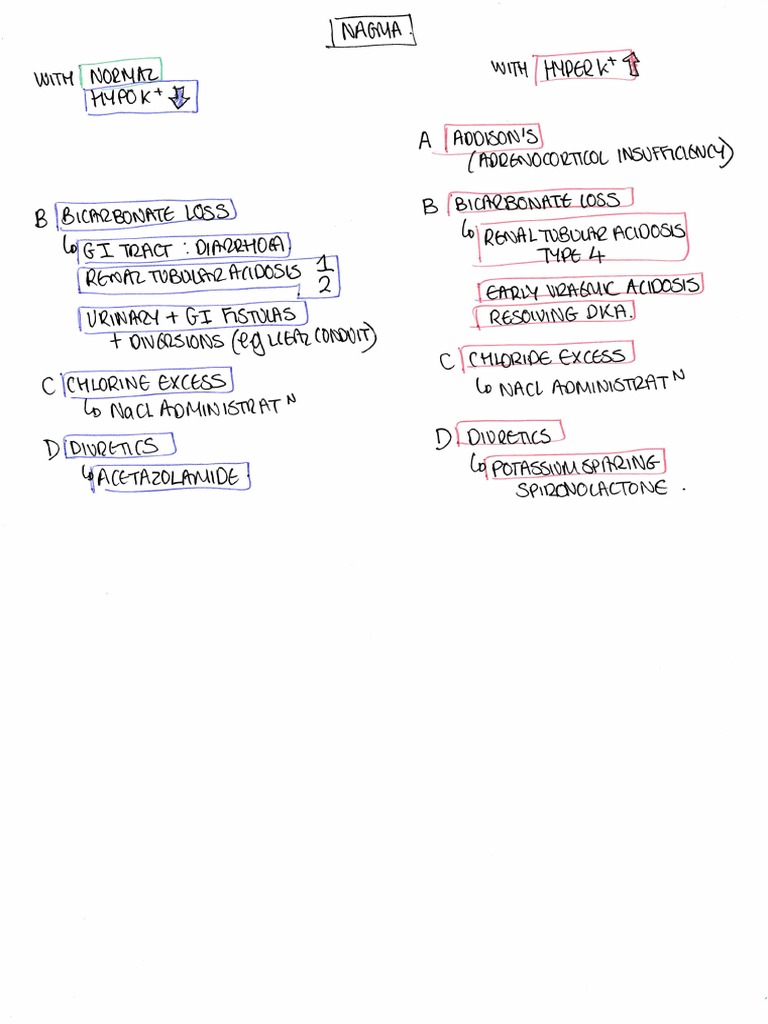 NAGMA.
WITH NORMAL
HYPO K+ ⇩
B BICARBONATE LOSS
↳ GI TRACT : DIARRHOEA
RENAL TUBULAR ACIDOSIS 1
2
URINARY + GI FISTULAS
+ DIVERSIONS (eg ILEAL CONDUIT)
C CHLORINE EXCESS
↳ NaCL ADMINISTRAT N
D DIURETICS
↳ ACETAZOLAMIDE
WITH HYPER K+ ⇧
A ADDISON'S
(ADRENOCORTICOL INSUFFICIENCY)
B BICARBONATE LOSS
↳ RENAL TUBULAR ACIDOSIS
TYPE 4
EARLY URAEMIC ACIDOSIS
RESOLVING DKA.
C CHLORIDE EXCESS
↳ NACL ADMINISTRAT N
D DIURETICS
↳ POTASSIUM SPARING
SPIRONOLACTONE .